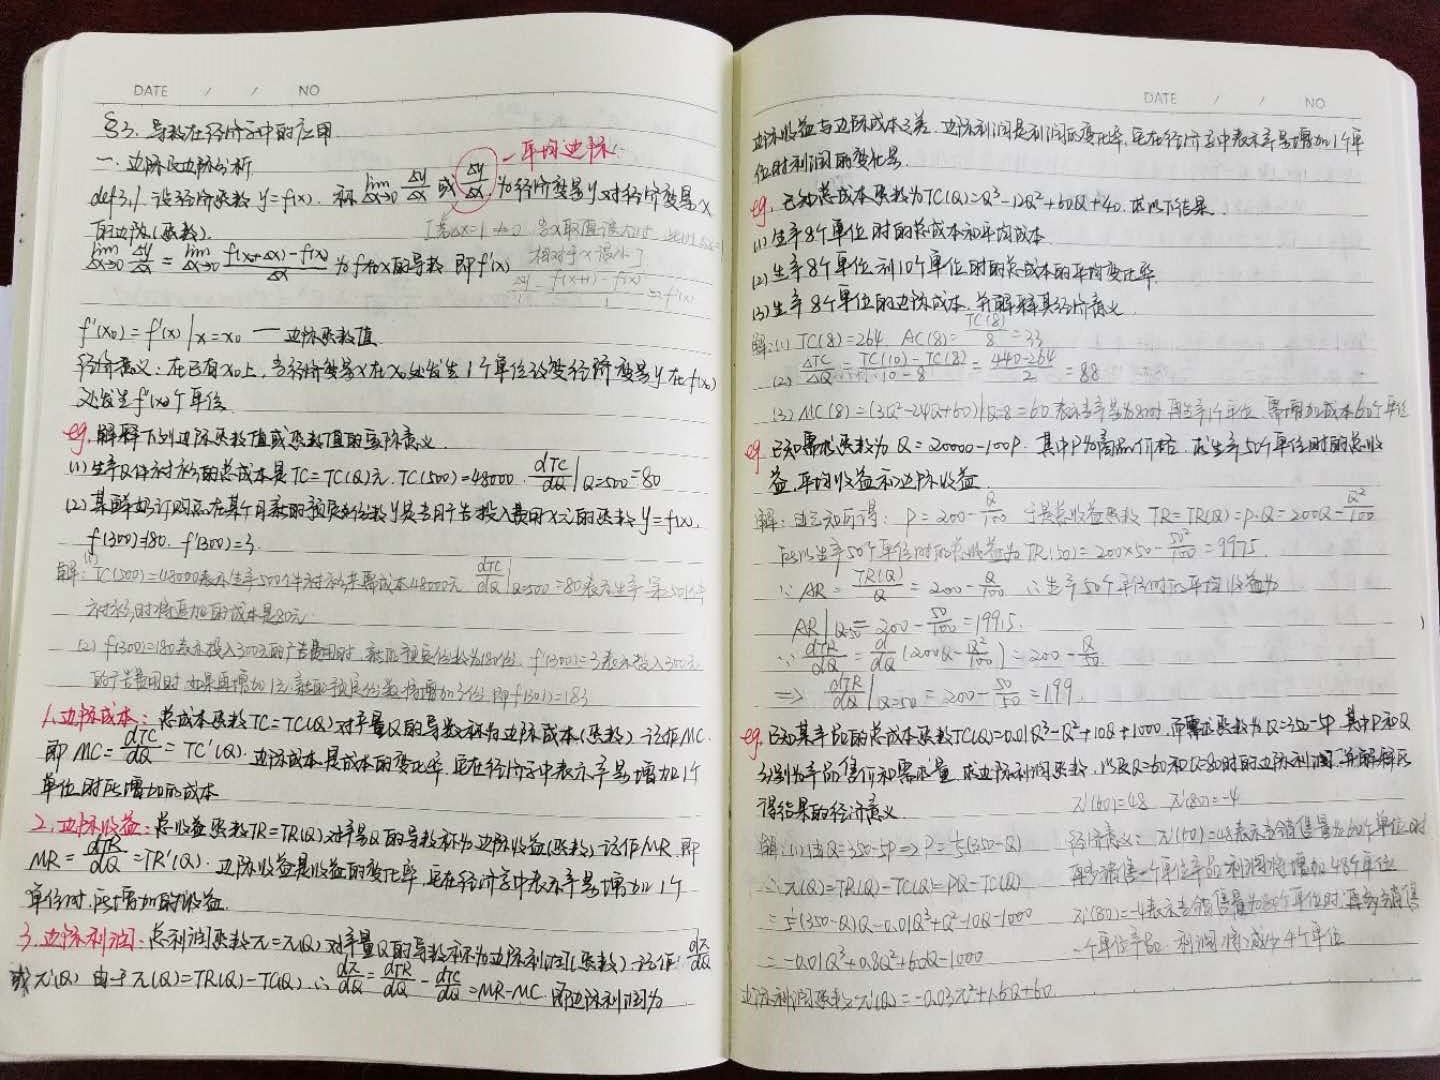 DATE / / NO
§3. 导数在经济学中的应用
一. 边际及边际分析
一平均边际
def3.1. 设经济函数 y=f(x). 称 lim Δx→0 Δy/Δx 或 Δy/Δx 为经济变量y对经济变量x
的边际(函数).
[若Δx=1→0 当x取值很大时
lim Δx→0 Δy/Δx = lim Δx→0 f(x+Δx)-f(x)/Δx 为f在x的导数 即f'(x)
相对于x很小]
Δy = f(x+1)-f(x)/1 ≈ f'(x)
f'(x₀) = f'(x)|x=x₀ — 边际函数值
经济意义: 在已有x₀上, 当经济变量x在x₀处发生1个单位改变经济变量y在f(x₀)
处发生f'(x₀)个单位
eg. 解释下列边际函数值或函数值的实际意义.
(1) 生产Q件衬衫的总成本是TC=TC(Q)元. TC(500)=48000. dTC/dQ|Q=500=80
(2) 某鲜奶订购点在某个月新的预定份数y是当月广告投入费用x元的函数 y=f(x).
f(300)=180. f'(300)=3.
解: (1) TC(500)=48000表示生产500件衬衫共需成本48000元 dTC/dQ|Q=500=80表示生产第501件
衬衫时将追加的成本是80元.
(2) f(300)=180表示投入300元的广告费用时, 新的预定份数为180份. f'(300)=3表示投入300元
的广告费用时 如果再增加1元, 新的预定份数将增加3份 即f(301)=183
1.边际成本: 总成本函数TC=TC(Q)对产量Q的导数称为边际成本(函数) 记作MC.
即 MC=dTC/dQ=TC'(Q). 边际成本是成本的变化率. 它在经济学中表示产量增加1个
单位时所增加的成本
2.边际收益: 总收益函数TR=TR(Q)对产量Q的导数称为边际收益(函数) 记作MR. 即
MR=dTR/dQ=TR'(Q). 边际收益是收益的变化率. 它在经济学中表示产量增加1个
单位时, 所增加的收益.
3.边际利润: 总利润函数π=π(Q)对产量Q的导数称为边际利润(函数). 记作: dπ/dQ
或π'(Q) 由于π(Q)=TR(Q)-TC(Q) ∴ dπ/dQ=dTR/dQ-dTC/dQ=MR-MC. 即边际利润为
DATE / / NO
边际收益与边际成本之差. 边际利润是利润的变化率, 它在经济学中表示产量增加1个单
位时利润的变化量.
eg. 已知总成本函数为TC(Q)=Q³-12Q²+60Q+40. 求以下结果.
(1) 生产8个单位时的总成本和平均成本
(2) 生产8个单位到10个单位时的总成本的平均变化率.
(3) 生产8个单位的边际成本, 并解释其经济意义.
解: (1) TC(8)=264 AC(8)=TC(8)/8=33
(2) ΔTC/ΔQ=TC(10)-TC(8)/10-8=440-264/2=88
(3) MC(8)=(3Q²-24Q+60)|Q=8=60. 表示当产量为8时, 再生产1个单位, 需增加成本60个单位
eg. 已知需求函数为 Q=20000-100P. 其中P为商品价格. 求生产50个单位时的总收
益, 平均收益和边际收益
解: 由已知可得: P=200-Q/100 于是总收益函数 TR=TR(Q)=P·Q=200Q-Q²/100
所以生产50个单位时的总收益为 TR(50)=200×50-50²/100=9975.
∵ AR=TR(Q)/Q=200-Q/100 ∴生产50个单位时的平均收益为
AR|Q=50=200-50/100=199.5.
∵ dTR/dQ=d/dQ(200Q-Q²/100)=200-Q/50
⟹ dTR/dQ|Q=50=200-50/50=199.
eg. 已知某产品的总成本函数TC(Q)=0.01Q³-Q²+10Q+1000. 而需求函数为Q=350-5P. 其中P和Q
分别为产品售价和需求量. 求边际利润函数, 以及Q=60和Q=80时的边际利润. 并解释所
得结果的经济意义.
π'(60)=48 π'(80)=-4
解: (1) 由Q=350-5P⇒P=1/5(350-Q)
∴π(Q)=TR(Q)-TC(Q)=PQ-TC(Q)
=1/5(350-Q)Q-0.01Q³+Q²-10Q-1000
=-0.01Q³+0.8Q²+60Q-1000
边际利润函数π'(Q)=-0.03π²+1.6Q+60.
经济意义: π'(60)=48表示当销售量为60个单位时
再多销售一个单位产品利润将增加48个单位
π'(80)=-4表示当销售量为80个单位时. 再多销售
一个单位产品. 利润将减少4个单位